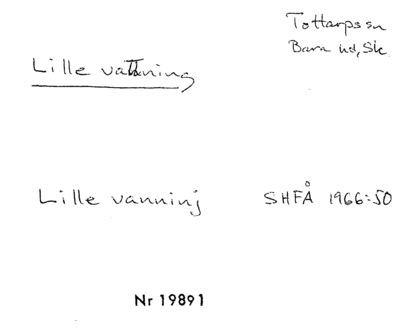 Tottarps sn
Bara hd, Sk.
Lille vattning
Lille vanning SHFÅ 1966:50
Nr 19891